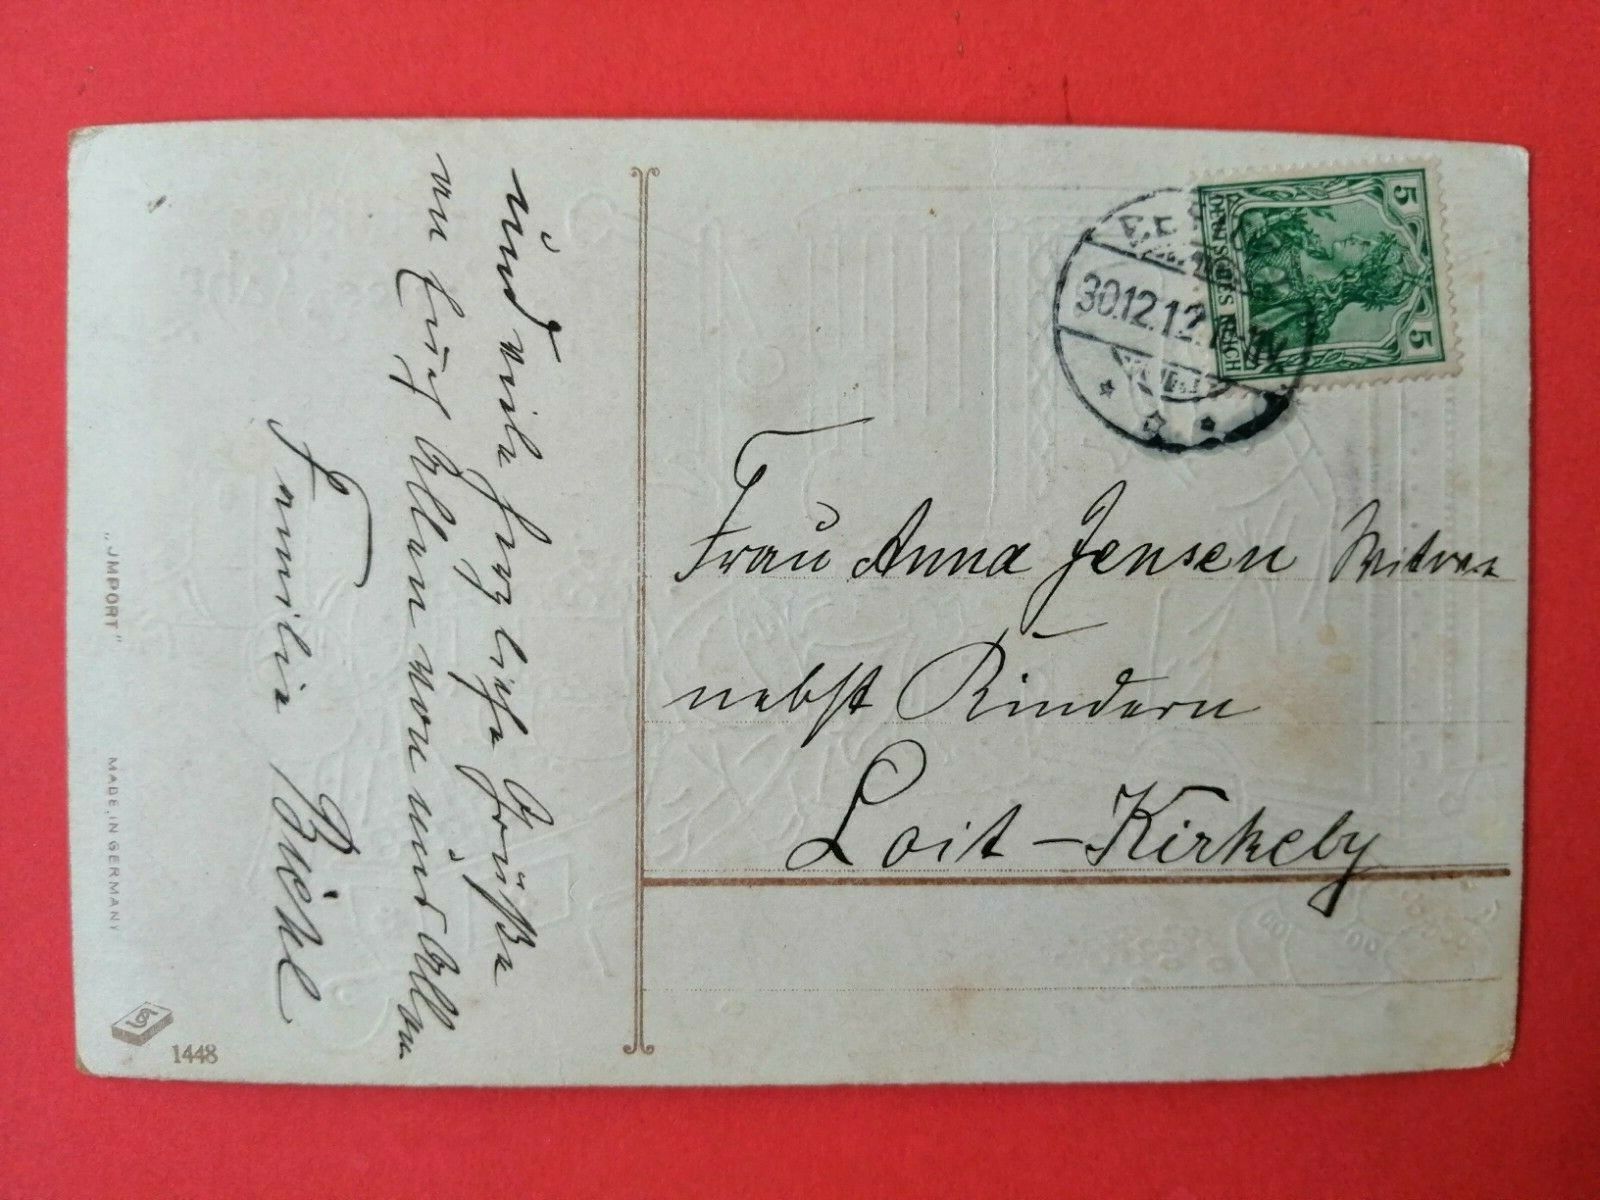 und viele herzliche Grüße
an Euch Allen von uns Allen
Familie Biehl
"IMPORT"
MADE IN GERMANY
1448
30.12.12.
DEUTSCHES REICH
5
5
Frau Anna Jensen Witwe
nebst Kindern
Loit-Kirkeby